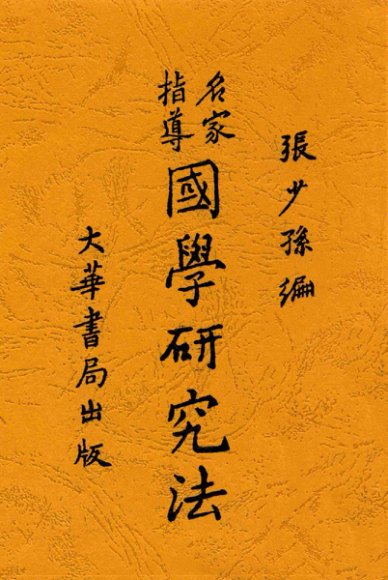 張少孫編
名家
指導
國學研究法
大華書局出版